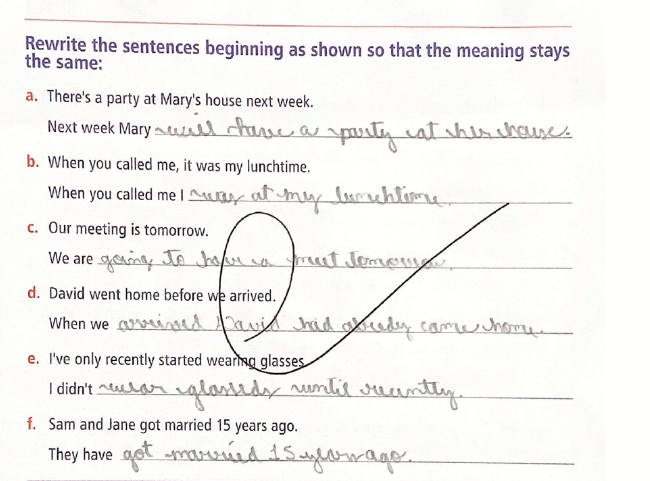 Rewrite the sentences beginning as shown so that the meaning stays
the same:
a. There's a party at Mary's house next week.
Next week Mary will have a party at her house.
b. When you called me, it was my lunchtime.
When you called me I was at my lunchtime.
c. Our meeting is tomorrow.
We are going to have a meet tomorrow.
d. David went home before we arrived.
When we arrived David had already came home.
e. I've only recently started wearing glasses.
I didn't wear glasses until recently.
f. Sam and Jane got married 15 years ago.
They have got married 15 years ago.